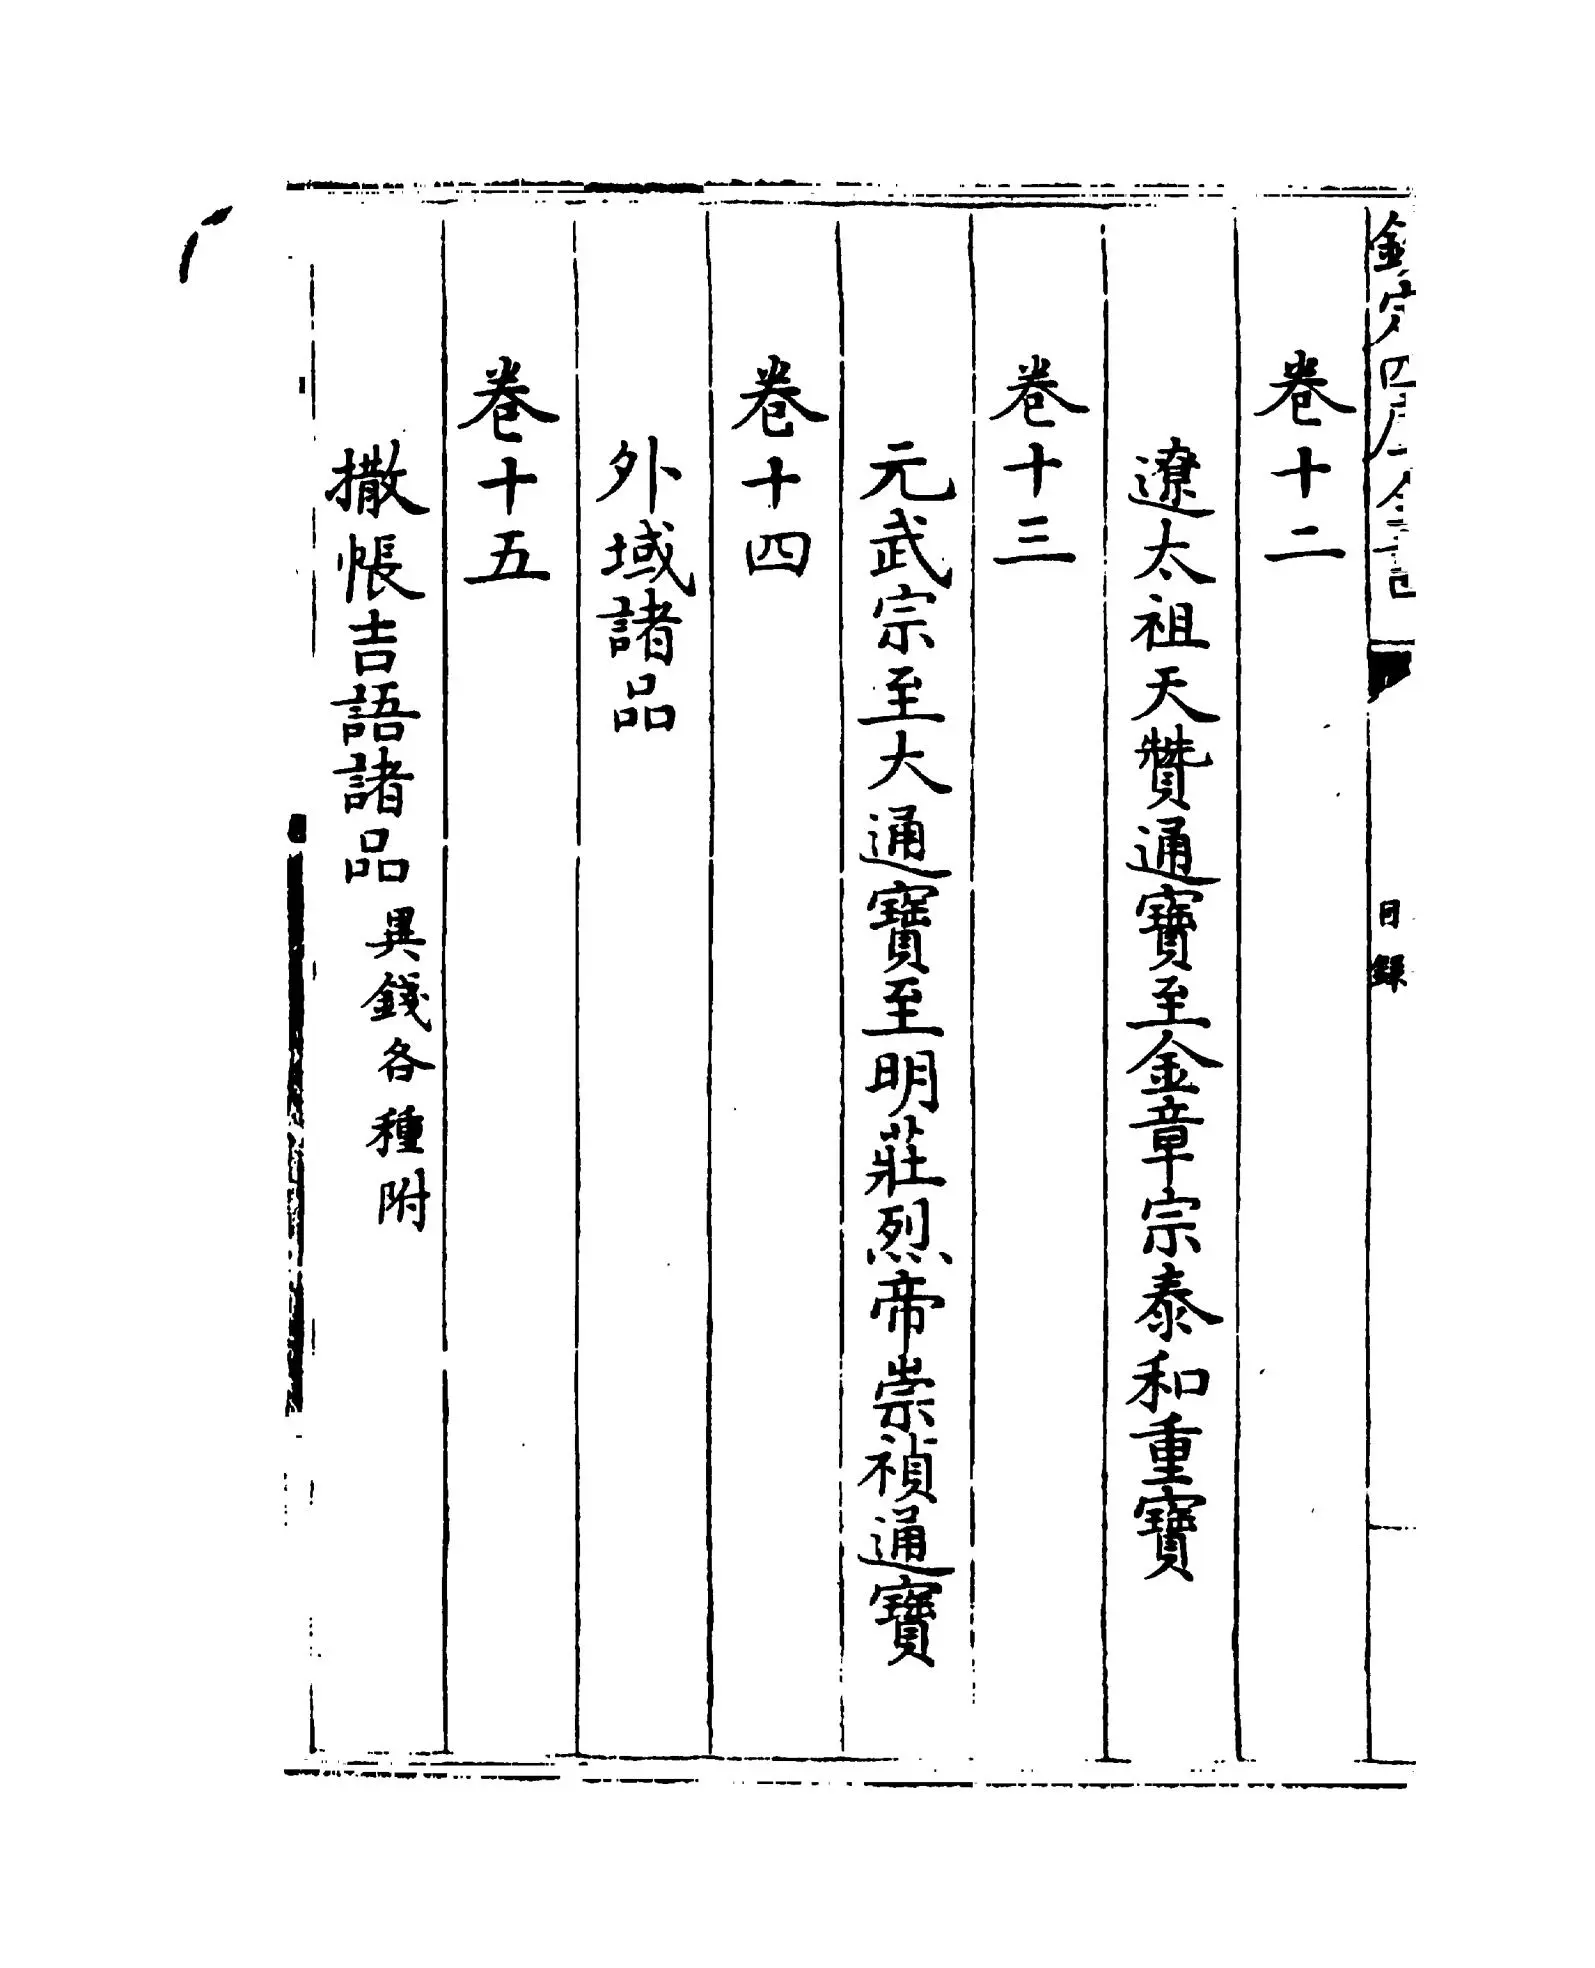 欽定四庫全書
目錄
卷十二
遼太祖天贊通寶至金章宗泰和重寶
卷十三
元武宗至大通寶至明莊烈帝崇禎通寶
卷十四
外域諸品
卷十五
撒帳吉語諸品異錢各種附